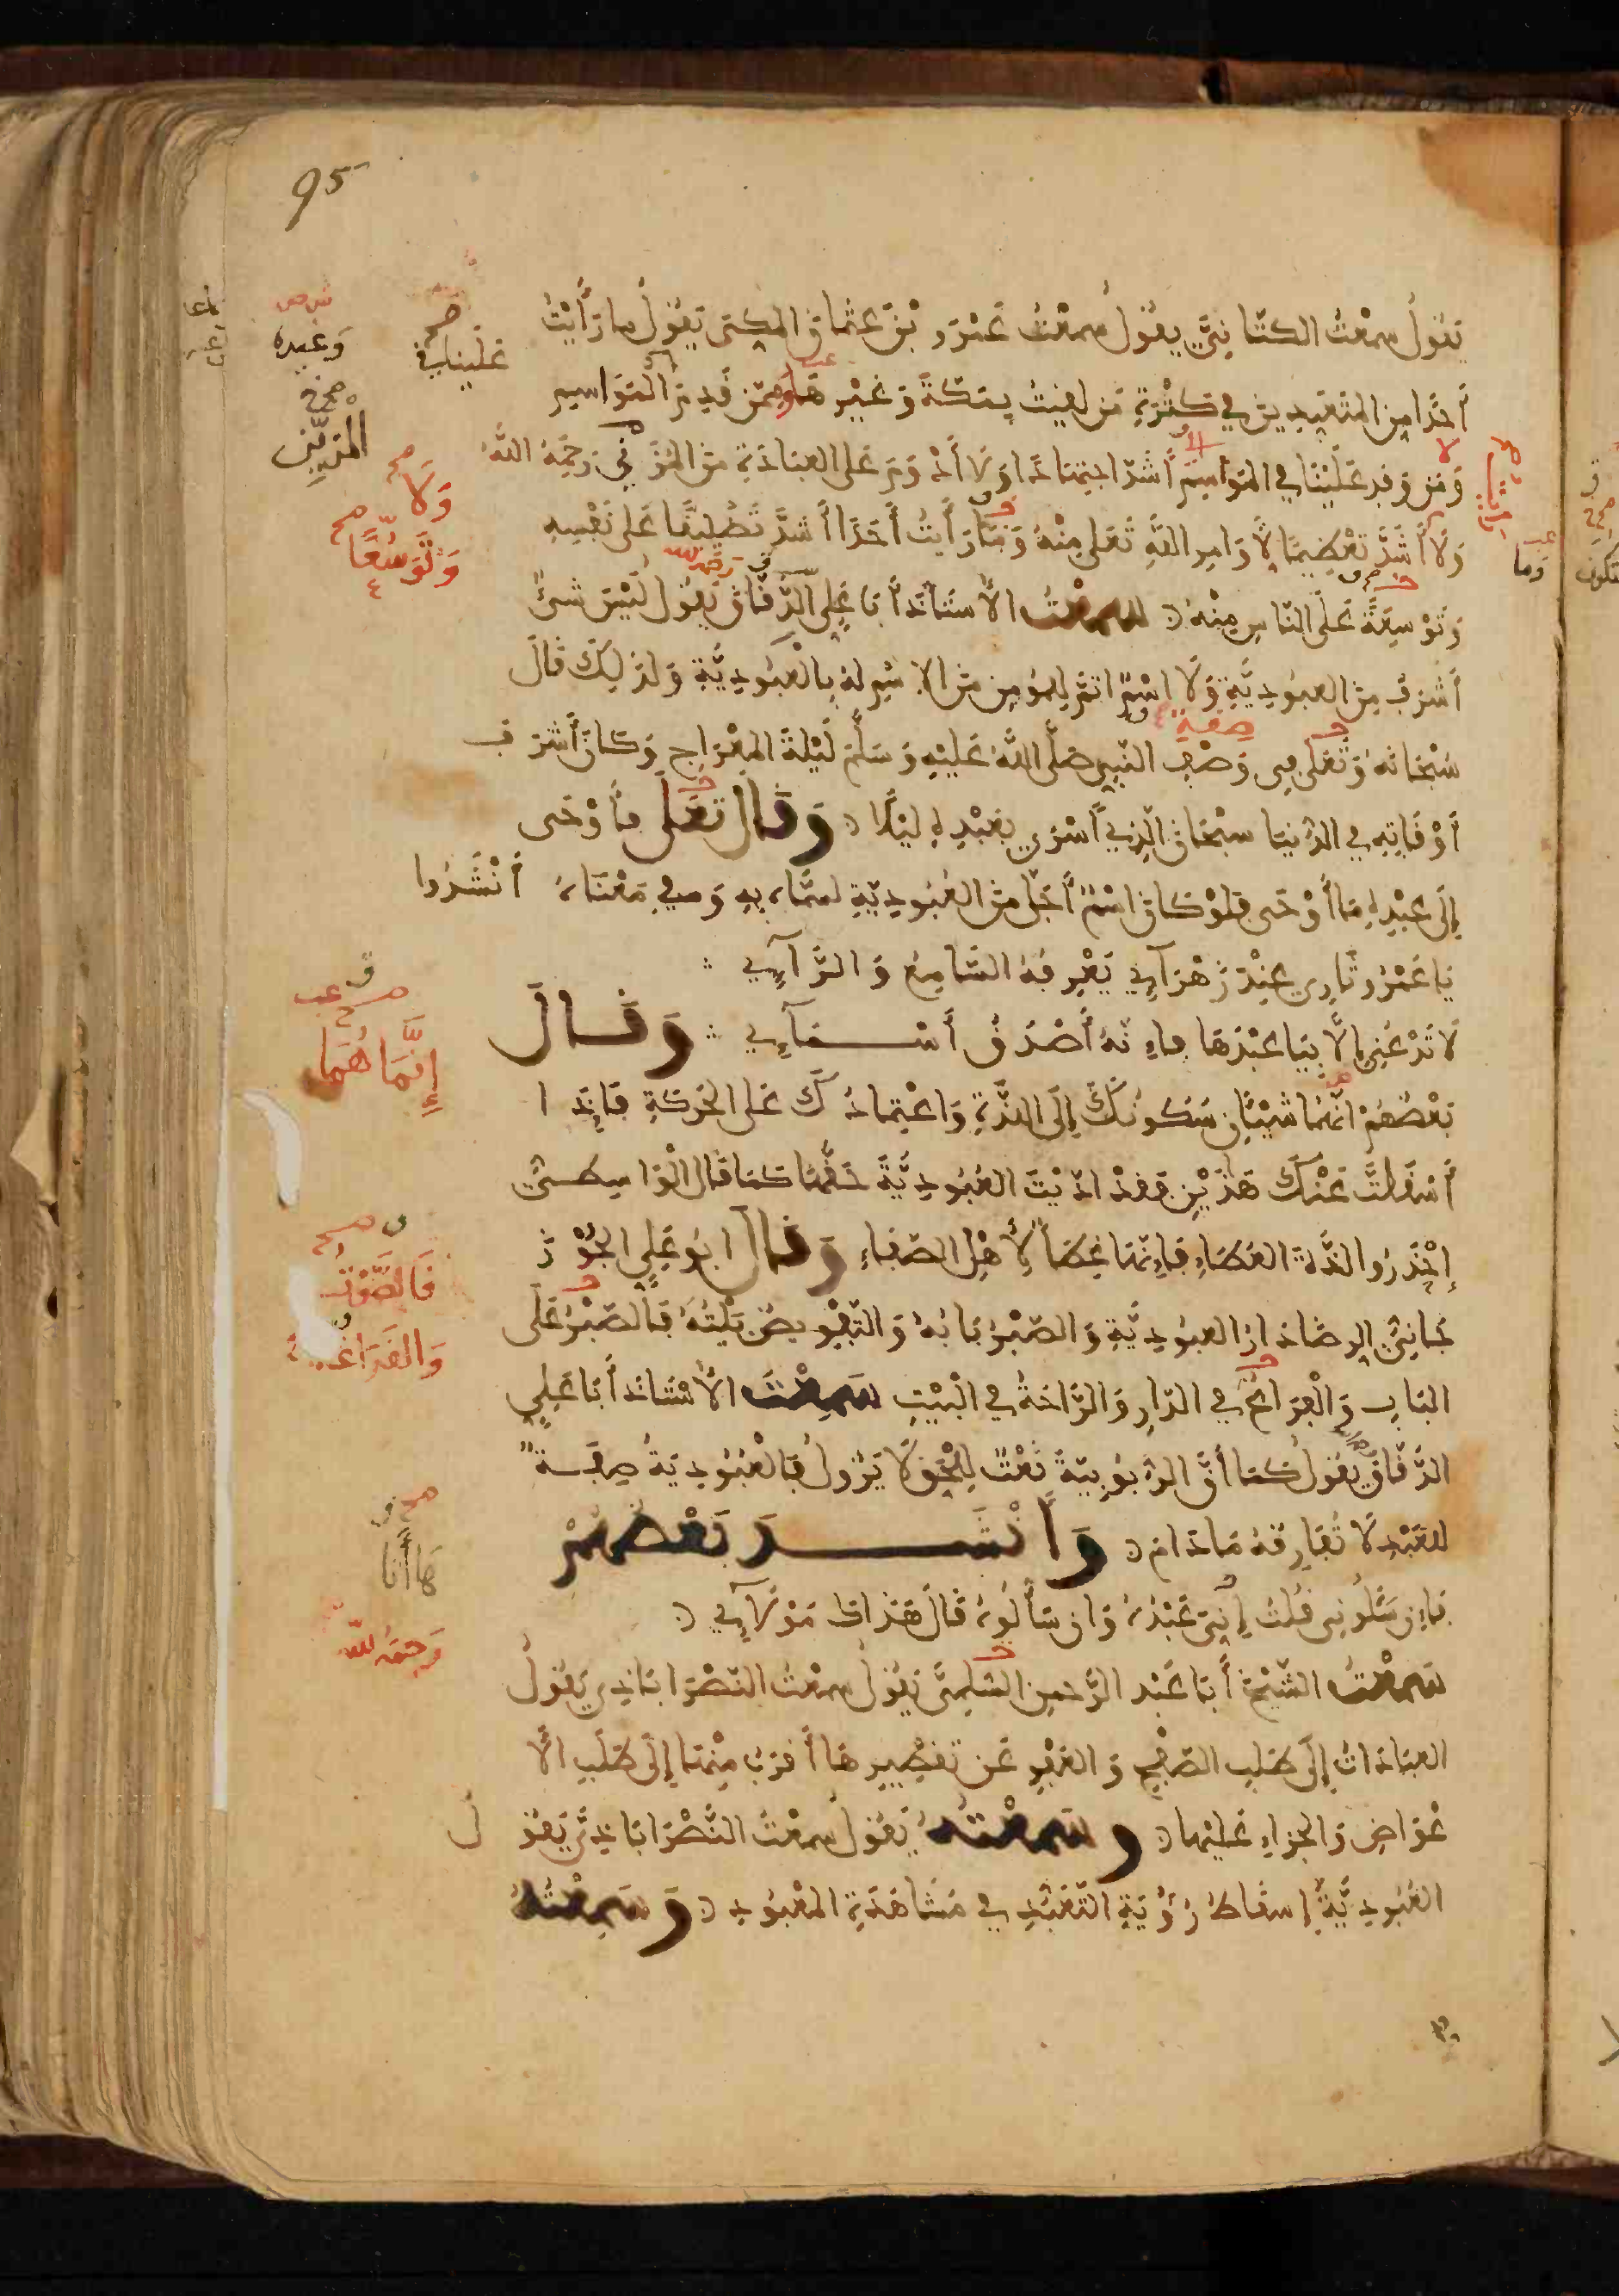 95
يَقُولُ سمعْتُ الكتّانِيَّ يقُولُ سمعْتُ عَمْرَو بْنَ عثمانَ المكي يَقُولُ ما رَأَيْتُ
أحَدًا مِن المتعَبِدينَ في كَثْرَةِ مَن لقيتُ بمَكّةَ وَغَيْرِهَا وممّن قَدِمَ المَوَاسِم
وَمَن وَفِد عَلَيْنَا في المَوَاسِمِ أَشَدَّ اجتِهَادًا وَلَا أَدْوَمَ عَلى العبَادَةِ مِنَ المُزَنِي رَحِمَهُ اللّهُ
وَلَا أَشَدَّ تعْظِيمًا لأَوَامِرِ اللَّهِ تَعَلى مِنْهُ وَمَا رَأَيْتُ أَحَدًا أَشدَّ تَضْيِيقًا عَلى نَفْسِهِ
وَتَوْسِعَةً عَلَى النّاسِ مِنْهُ سَمعْتُ الأُسْتَاذَ أبَا عَلِي الدَّقّاقَ يَقُول لَيْسَ شَيءٌ
أشرَفَ مِنَ العبُودِيَّةِ وَلَا اسْمٌ اتمّ لِلمؤمِنِ مِنَ الاسْمِ لهُ بِالعُبُودِيَّةِ وَلذَلِكَ قَالَ
سُبْحَانَهُ وَتَعَلى فِي وَصْفِ النّبِي صَلَّى اللَّهُ عَلَيْهِ وَسَلَّمَ لَيْلَةَ المِعْرَاجِ وَكَانَ أَشْرَفَ
أَوْقَاتِهِ فِي الدُّنْيَا سبْحَانَ الّذِي أَسْرَى بعَبْدِهِ لَيْلًا وَقَالَ تعَلى فَأَوْحَى
إِلَى عَبْدِهِ مَا أَوْحَى فلوْ كَانَ اسْمٌ أَجَلّ مِنَ العُبُودِيّةِ لسمَّاهُ بِهِ وَفِي مَعْنَاهُ أنْشَدُوا
يَا عَمْرُو ثَارِي عِنْدَ زَهْرَآئِي يَعْرِفُهُ السَّامِعُ وَالرَّآئِي
لَا تَدْعُنِي إِلَّا بِيَا عَبْدَهَا فإِنّهُ أَصْدَقُ أَسْمَآئِي وَقَالَ
بَعْضُهُمْ انَّمَا شَيْئَانِ سُكونُكَ إِلَى اللَّذَّةِ وَاعْتِمادُكَ عَلى الحَرَكَةِ فَإِذَا
أَسْقَطتَّ عَنْكَ هَذَيْنِ فَقدْ ادّيْتَ العُبُودِيَّةَ حَقَّهَا كَمَا قَالَ الْوَاسِطِيُّ
إِحْذَرُوا لَذَّةَ العَطَاءِ فَإِنَّهَا غِطَاءٌ لِأَهْلِ الصَّفَاءِ وَقَالَ ابُو عَلِي الجُوْزَ
جَانِيُّ الرِضَا دَارُ العبُودِيَّةِ وَالصّبْرُ بَابُهُ وَالتّفْوِيضُ بَيْتُهُ فَالصّبْرُ عَلَى
البَابِ وَالْفَرَاغُ فِي الدّارِ وَالرَّاحَةُ فِي الْبَيْتِ سَمِعْتُ الأُسْتَاذَ أبَا عَلِي
الدَّقّاقَ يَقُولُ كَمَا أَنَّ الرُّبُوبِيّةَ نَعْتٌ لِلْحَقِّ لَا يَزُولُ فَالعُبُودِيّةُ صِفَةٌ
لِلعَبْدِ لَا تُفَارِقُهُ مَا دَامَ وَأَنْشَدَ بَعْضُهُمْ
فَإِن سَئَلُونِي قُلْتُ إِنِّي عَبْدُهُ وَإِن سَأَلُوهُ قَالَ هَذَاكَ مَوْلَآئِي
سَمعْتُ الشَّيْخَ أَبَا عَبْدِ الرَّحمنِ السُّلَمِيَّ يَقُولُ سمعْتُ النّصْرَابَاذِي يَقُولُ
العبَادَاتُ إِلَى طَلَبِ الصّفْحِ وَالعَفْوِ عَن تَقصِيرِهَا أَقرَبُ مِنْهَا إِلَى طَلَبِ الأَ
عْوَاضِ وَالجزَاءِ عَلَيْهَا وَسَمعْتُهُ يَقُولُ سمعْتُ النَّصْرَابَاذِيَّ يَقُولُ
العُبُودِيَّةُ إسقَاطُ رُؤْيَةِ التّعَبُّدِ فِي مُشَاهَدَةِ المَعْبُودِ وَسَمِعْتُهُ
صح
علينا في
وَغيره
وَلَا صح
وَتَوَسُّعًا صح
رَحمَه الله
صِفَة
إِنَّمَا هُمَا
فَالصَّوْتُ
وَالفَرَاغ
هَا أَنَا
رَحمَهُ الله
وَمَا